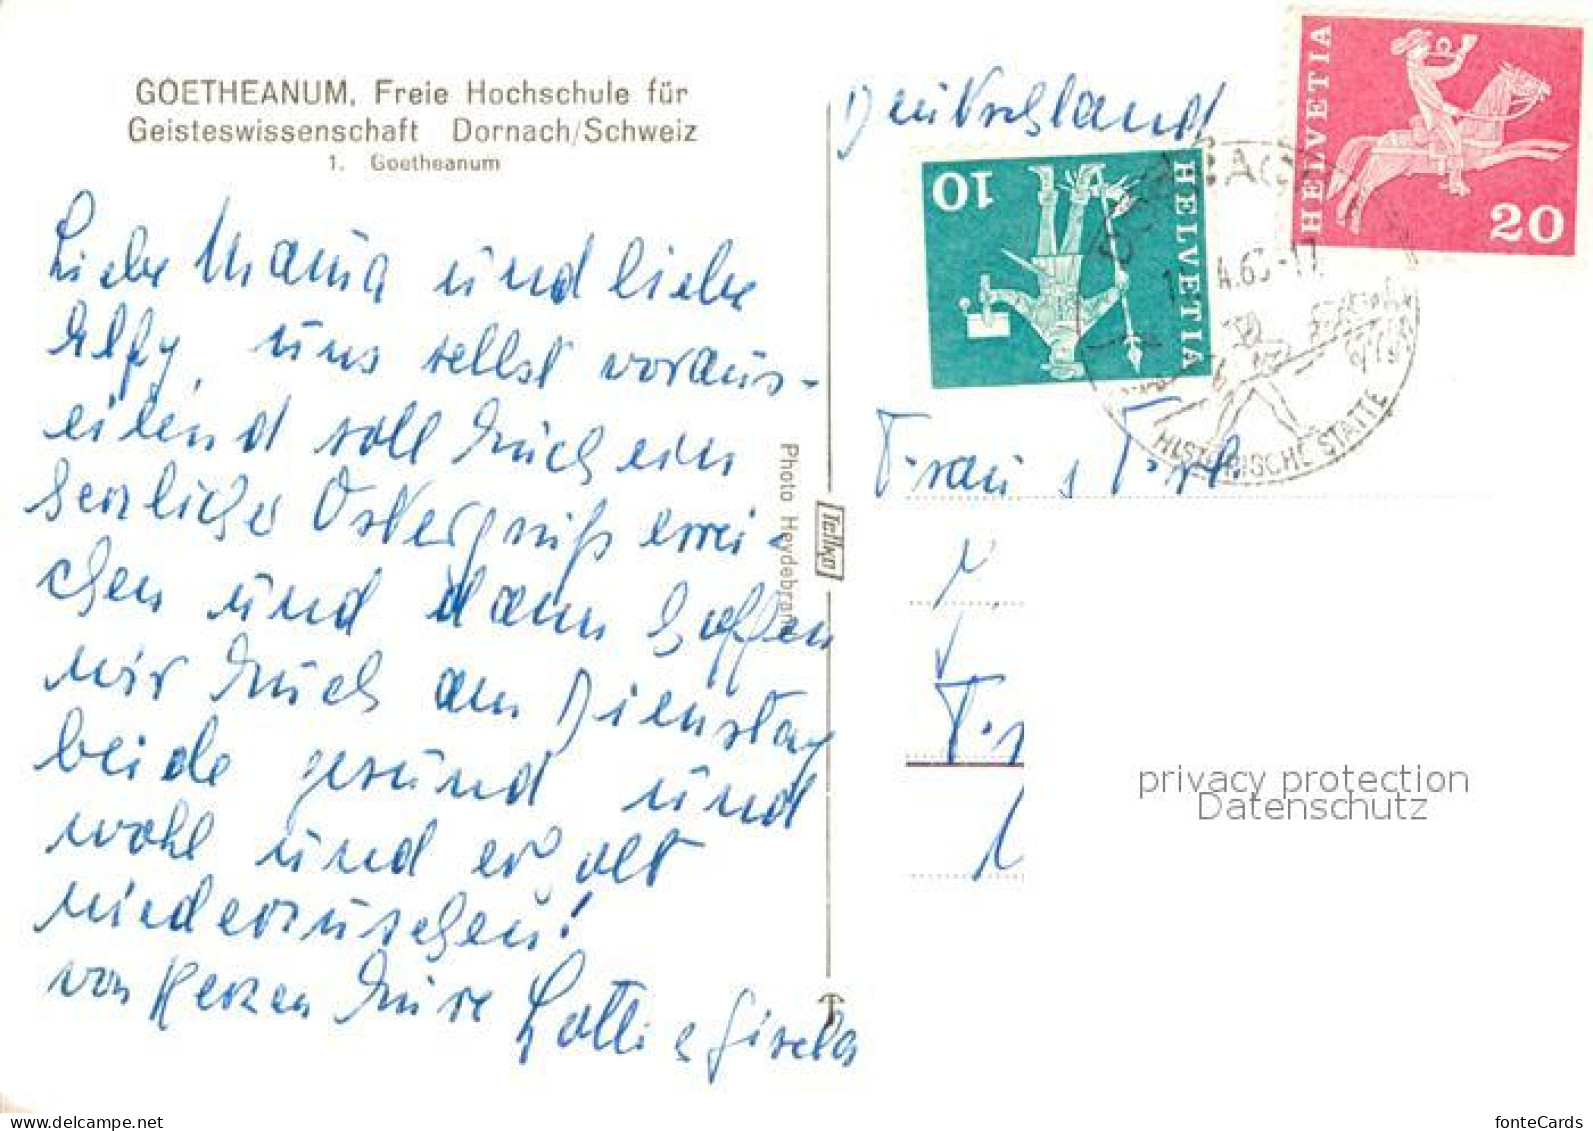 GOETHEANUM, Freie Hochschule für
Geisteswissenschaft Dornach/Schweiz
1. Goetheanum
Liebe Mama und liebe
Elfy, uns selbst voraus-
eilend soll Euch ein
herzlicher Ostergruß errei-
chen und dann hoffen
wir Euch am Dienstag
beide gesund und
wohl und erholt
wiederzusehen!
von Herzen Eure Lotti & Gisela
Photo Heydebrand
Tellko
Deutschland
HELVETIA
10
HELVETIA
20
HISTORISCHE STÄTTE
Frau
privacy protection
Datenschutz
www.delcampe.net
fonteCards